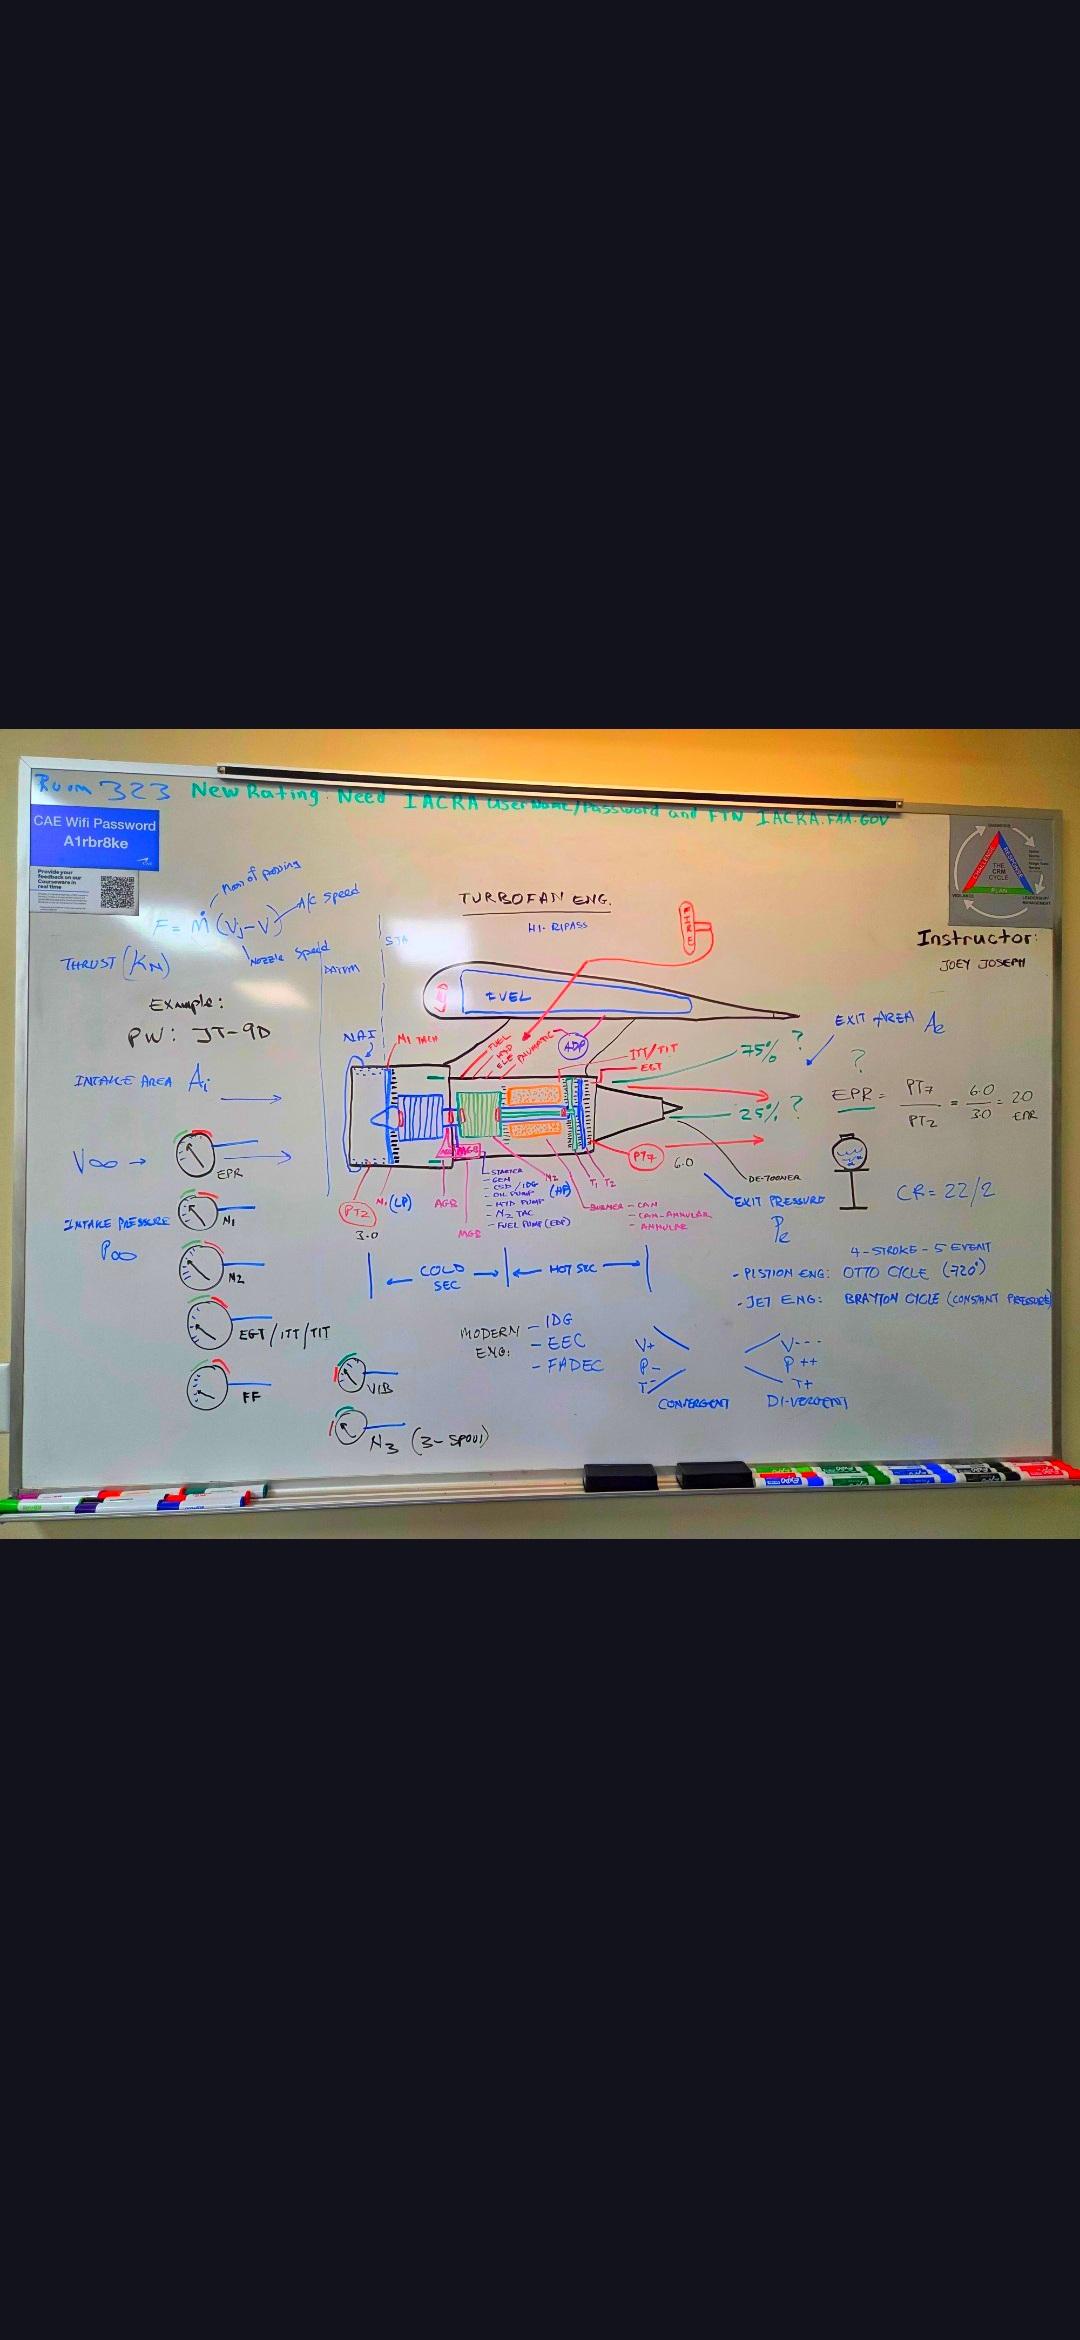 Room 323 New Rating. Need IACRA UserName/Password and FTN IACRA.FAA.GOV
CAE Wifi Password
A1rbr8ke
Provide your
feedback on our
Courseware in
real time
THE
CRM
CYCLE
CHALLENGE
RESPONSE
PLAN
VIGILANCE
LEADERSHIP/
MANAGEMENT
Instructor:
JOEY JOSEPH
Mass of passing
A/C speed
F = Ṁ (Vj-V)
Nozzle Speed
THRUST (KN)
Example:
PW: JT-9D
INTAKE AREA Ai
V∞ →
INTAKE PRESSURE
P∞
EPR
N1
N2
EGT/ITT/TIT
FF
VIB
N3 (3-SPOOl)
STA
DATUM
TURBOFAN ENG.
HI-BIPASS
FIRE
FUEL
NAI
N1 TACH
FUEL
HYD
ELE
PNEUMATIC
ADP
ITT/TIT
EGT
75% ?
25% ?
PT7
6.0
PT2
3.0
N1 (LP)
AGB
MGB
MGB
- STARTER
- GEN
- CSD/IDG
- OIL PUMP
- HYD PUMP
- N2 TAC
- FUEL PUMP (EDP)
N2
(HP)
T1 T2
BURNER - CAN
- CAN-ANNULAR
- ANNULAR
DE-TOONER
EXIT PRESSURE
Pe
EXIT AREA Ae
?
EPR = PT7/PT2 = 6.0/3.0 = 2.0
EPR
CR = 22/2
COLD
SEC
HOT SEC
4-STROKE-5 EVENT
- PISTION ENG: OTTO CYCLE (720°)
- JET ENG: BRAYTON CYCLE (CONSTANT PRESSURE)
MODERN
ENG:
- IDG
- EEC
- FADEC
V+
P-
T-
CONVERGENT
V---
P++
T+
DI-VERGENT